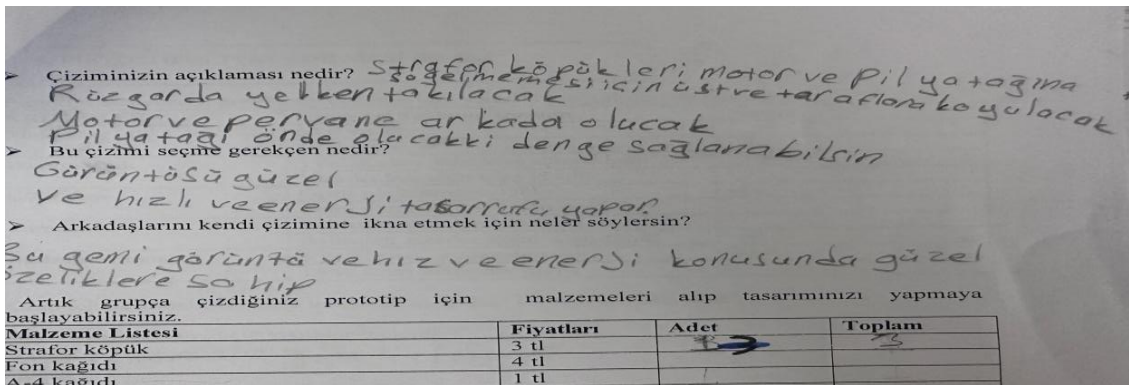 ➤ Çiziminizin açıklaması nedir? Strafor köpükleri motor ve Pil yatağına
su gelmemesi için üst ve taraflara koyulacak
Rüzgarda yelken takılacak
Motor ve pervane arkada olucak
Pil yatağı önde olucakki denge sağlanabilsin
➤ Bu çizimi seçme gerekçen nedir?
Görüntüsü güzel
ve hızlı ve enerji tasarrufu yapar
➤ Arkadaşlarını kendi çizimine ikna etmek için neler söylersin?
Bu gemi görüntü ve hız ve enerji konusunda güzel
özeliklere sahip
Artık grupça çizdiğiniz prototip için malzemeleri alıp tasarımınızı yapmaya
başlayabilirsiniz.
Malzeme Listesi Fiyatları Adet Toplam
Strafor köpük 3 tl
Fon kağıdı 4 tl
A-4 kağıdı 1 tl